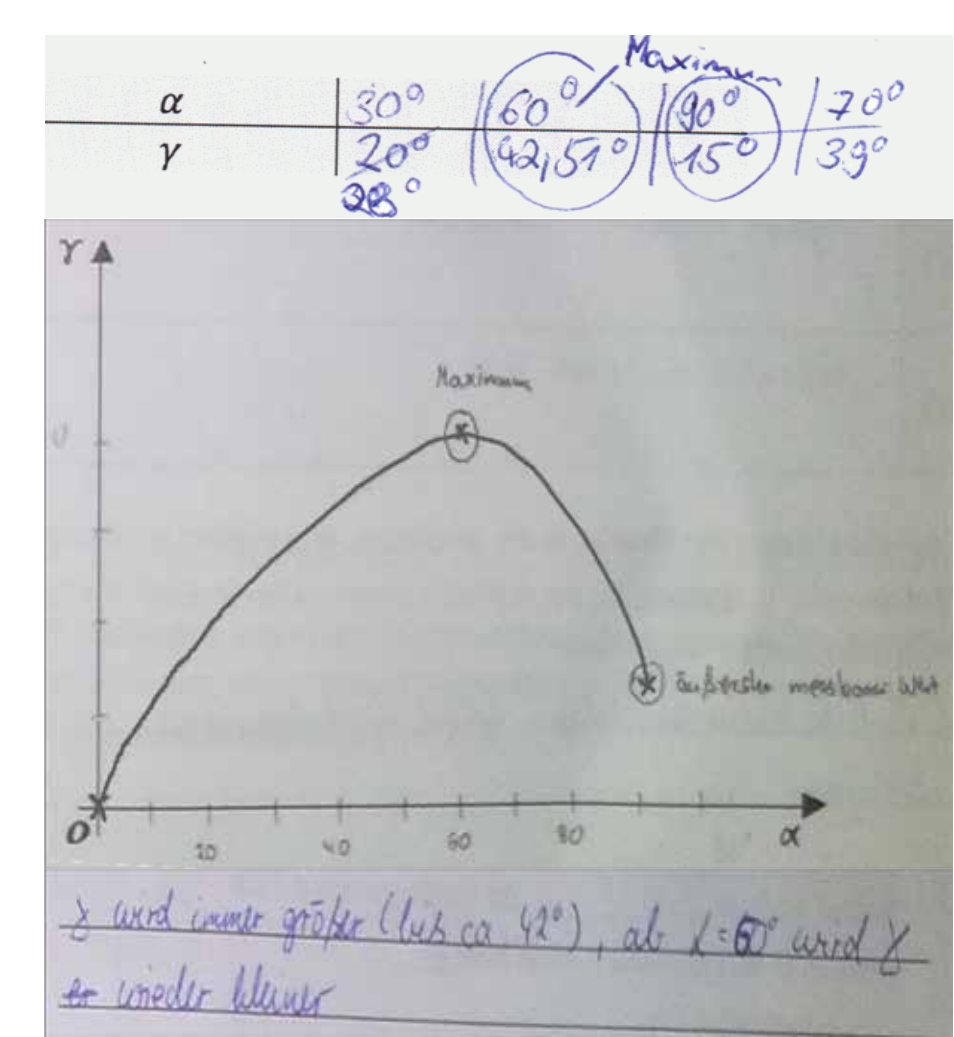 Maximum
α 30° 60° 90° 70°
γ 20° 42,51° 15° 39°
28°
γ
Maximum
äußerster messbarer Wert
0 20 40 60 80 α
γ wird immer größer (bis ca 42°), ab α=60° wird γ
er wieder kleiner